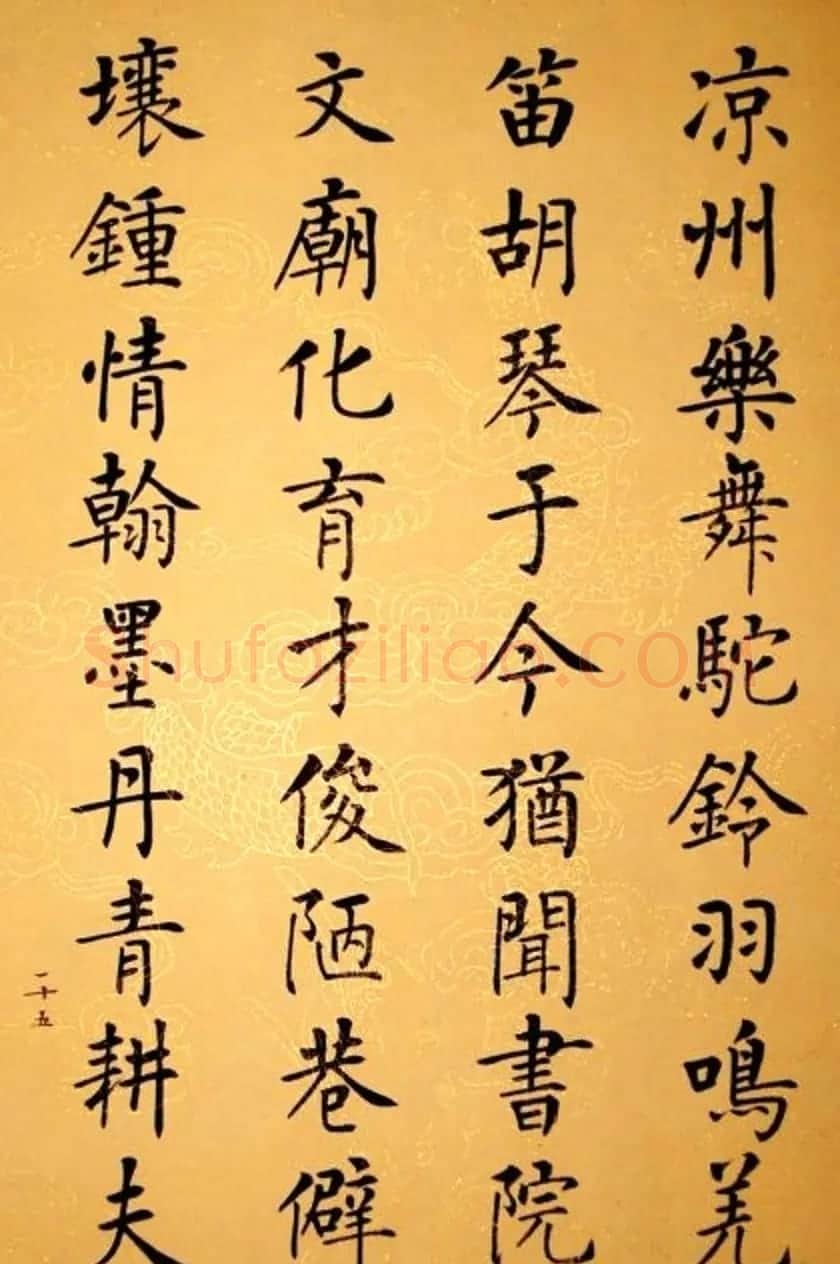 凉州樂舞駝鈴羽鳴羌
笛胡琴于今猶聞書院
文廟化育才俊陋巷僻
壤鍾情翰墨丹青耕夫
二十五
shufaziliao.com